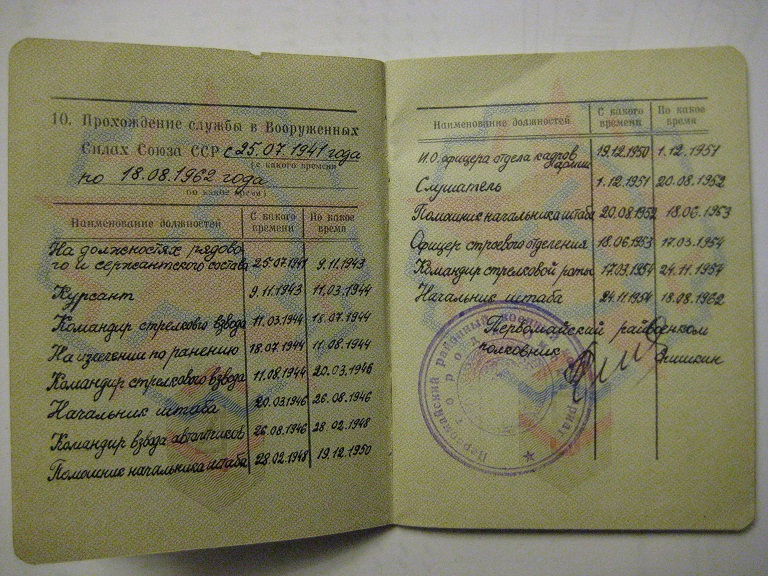 10. Прохождение службы в Вооруженных
Силах Союза ССР с 25.07.1941 года
(с какого времени
по 18.08.1962 года
по какое время)
Наименование должностей С какого времени По какое время
На должностях рядово-
го и сержантского состава 25.07.1941 9.11.1943
Курсант 9.11.1943 11.03.1944
Командир стрелкового взвода 11.03.1944 18.07.1944
На излечении по ранению 18.07.1944 11.08.1944
Командир стрелкового взвода 11.08.1944 20.03.1946
Начальник штаба 20.03.1946 26.08.1946
Командир взвода автоматчиков 26.08.1946 28.02.1948
Помошник начальника штаба 28.02.1948 19.12.1950
Наименование должностей С какого времени По какое время
И.О. офицера отдела кадров армии 19.12.1950 1.12.1951
Слушатель 1.12.1951 20.08.1952
Помошник начальника штаба 20.08.1952 18.06.1953
Офицер строевого отделения 18.06.1953 17.03.1954
Командир стрелковой роты 17.03.1954 24.11.1954
Начальник штаба 24.11.1954 18.08.1962
Первомайский райвоенком
полковник
Первомайский районный военный комиссариат